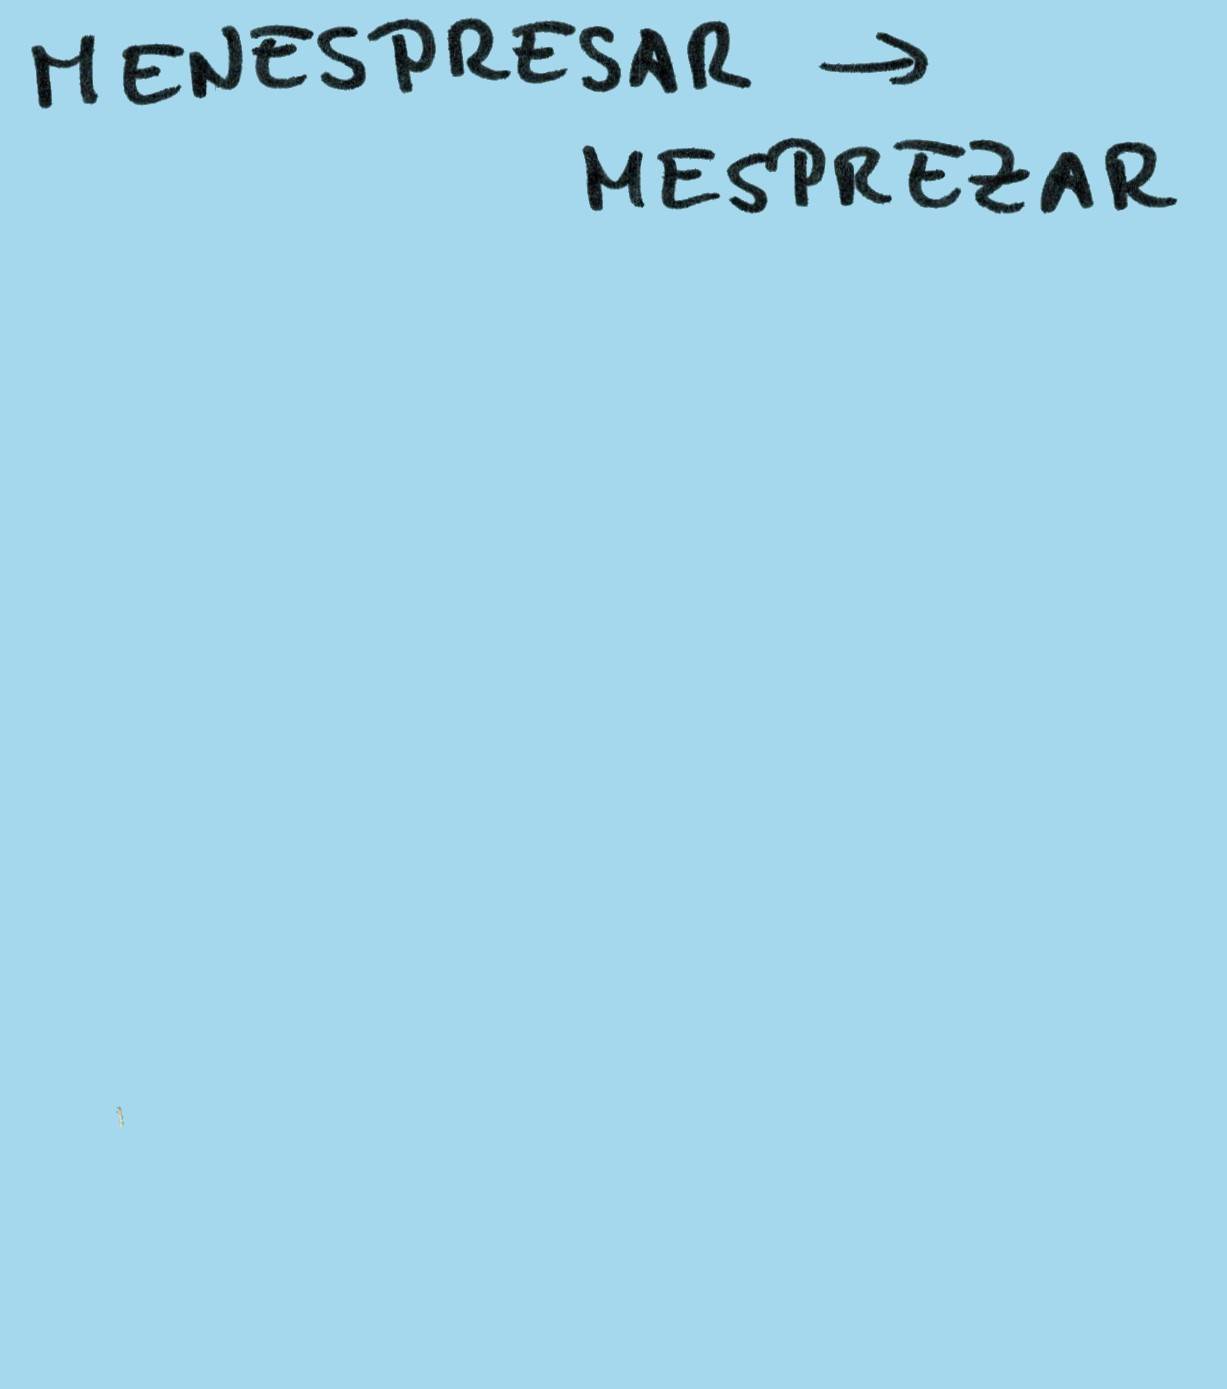 MENESPRESAR →
MESPREZAR